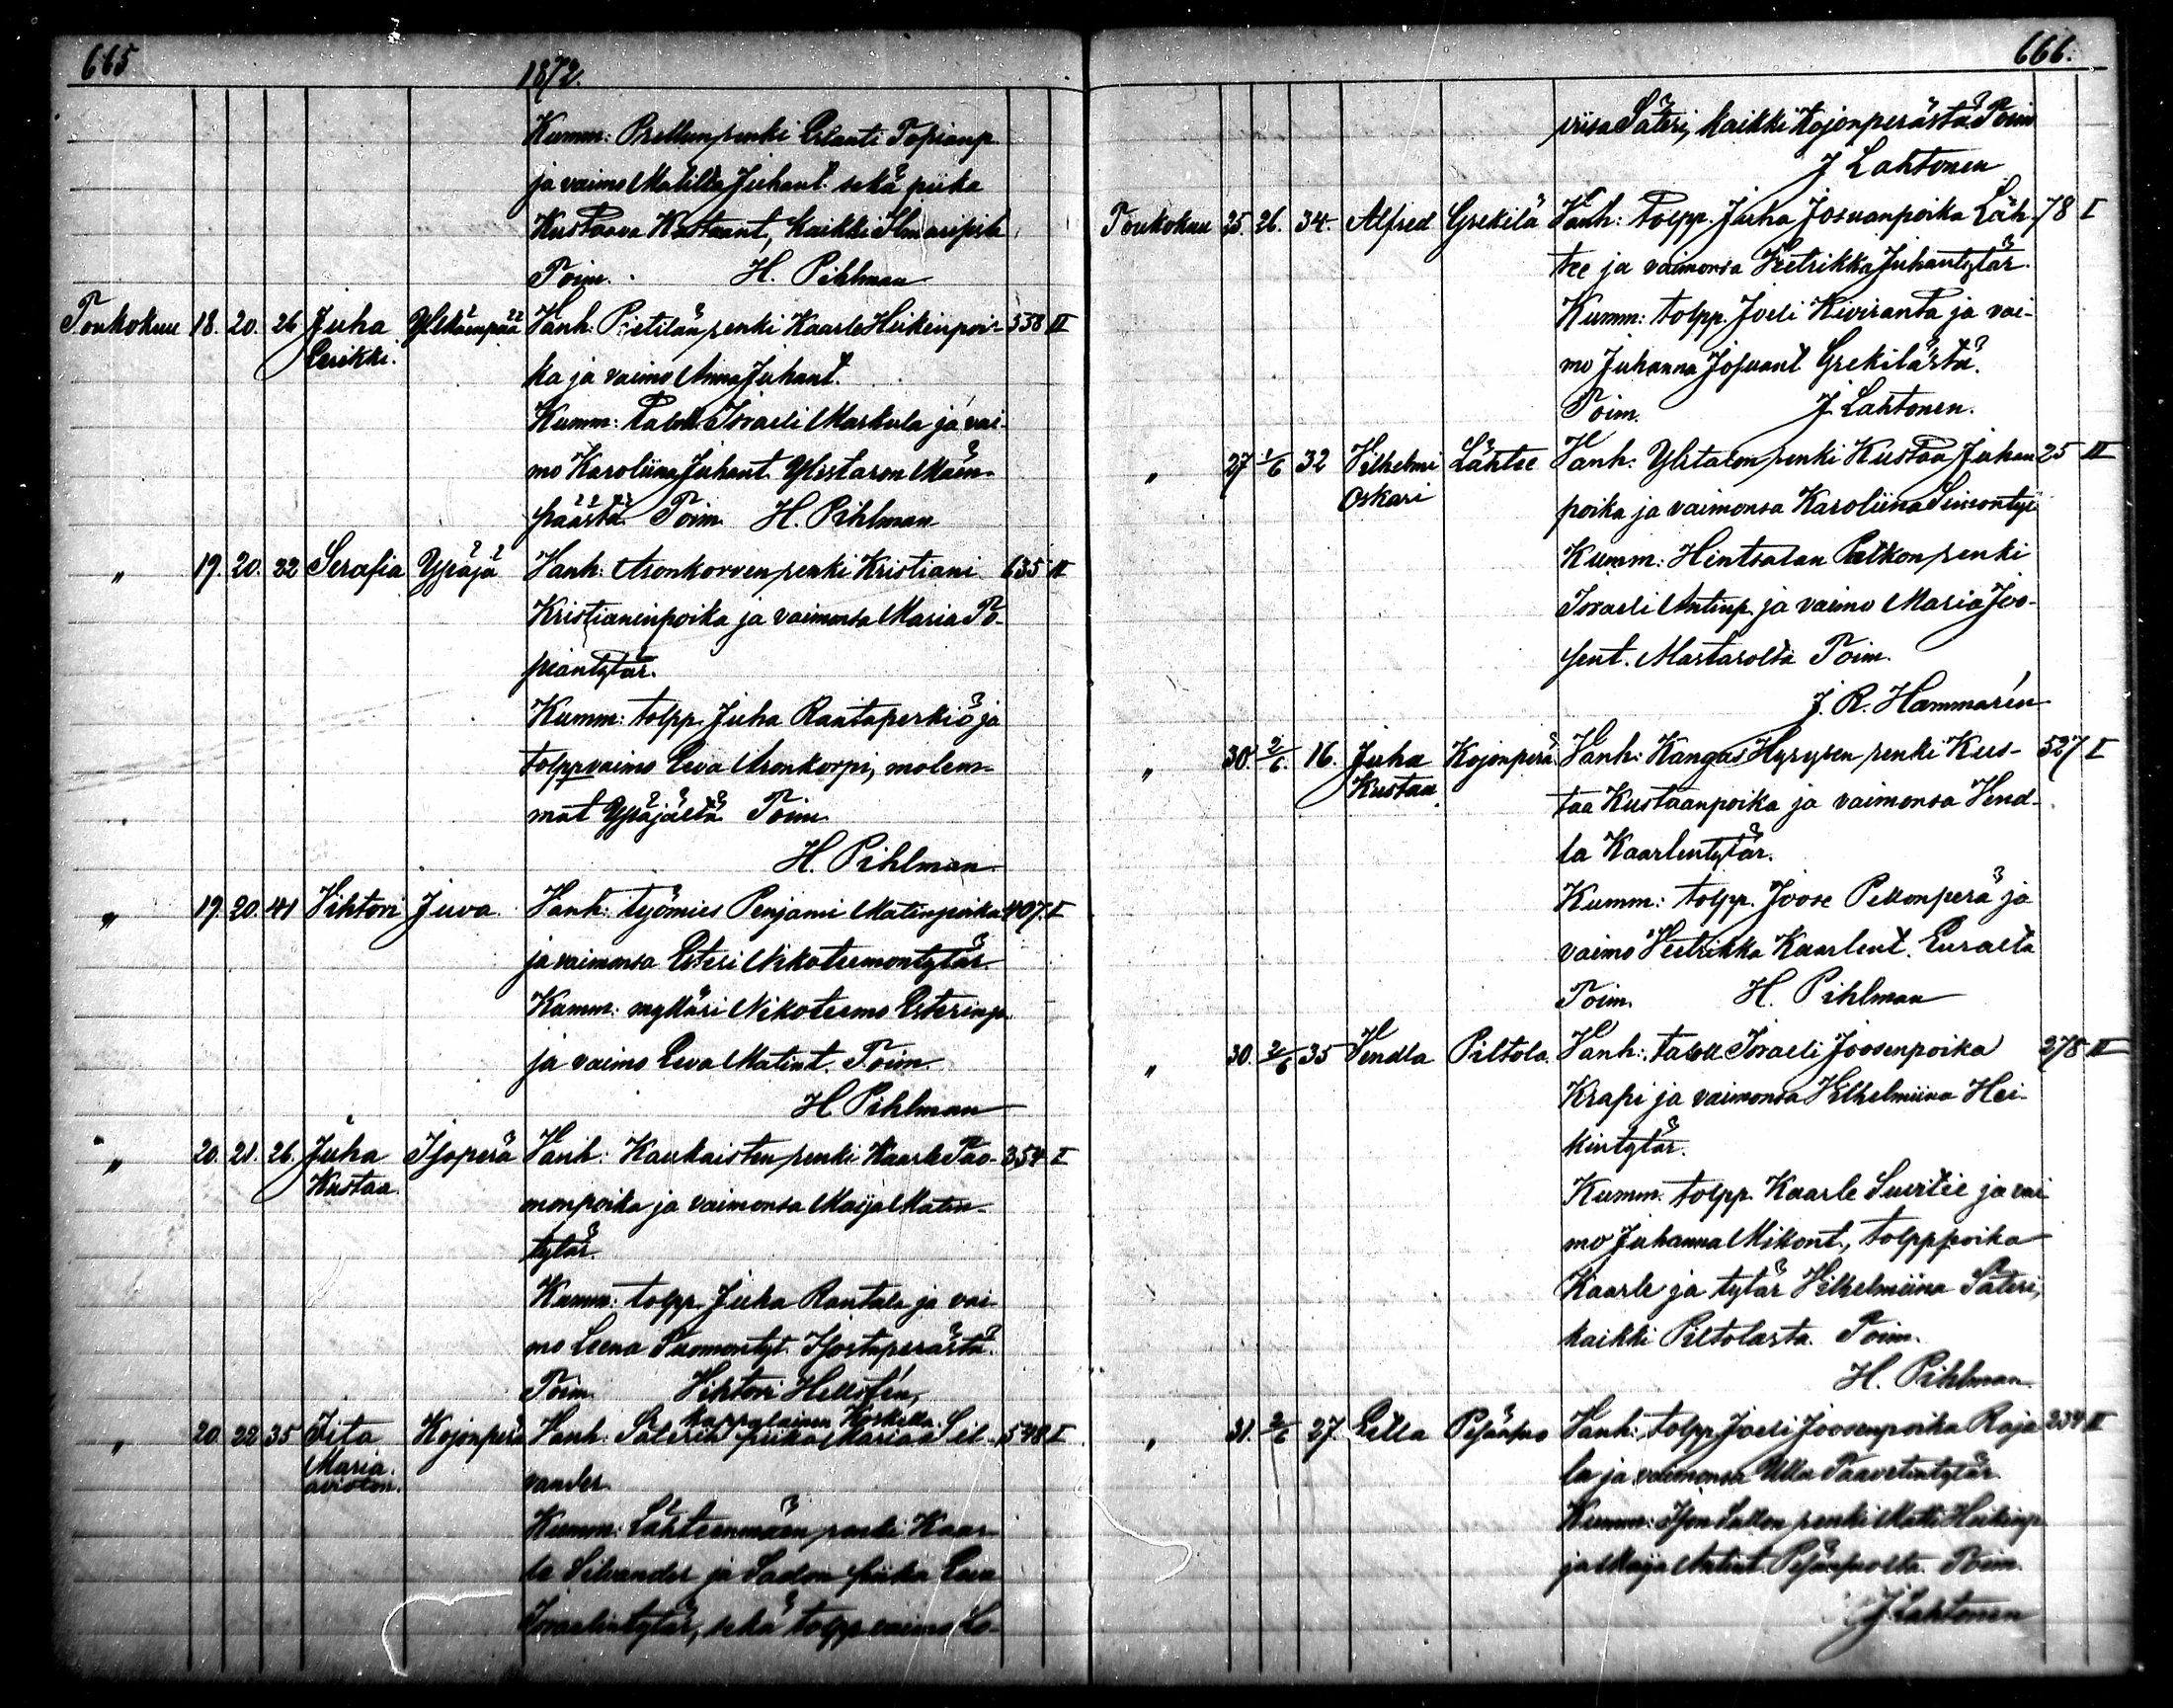 665
1872.
Kumm: Prellun renki Erlanti Topianp.
ja vaimo Matilta Juhant. sekä piika
Kustaava Kustaant, kaikki
Poim. H. Pihlman
Toukokuu 18. 20. 26 Juha Yliskäenpää Vanh: Pietilän renki Kaarle Heikinpoi- 538 II
Eerikki.
ka ja vaimo Anna Juhant.
Kumm: taloll. Israeli Markula ja vai-
mo Karoliina Juhant. Ylistaron Mäen-
päästä. Toim. H. Pihlman
„ 19. 20. 22 Serafia Ypäjä Vanh: Aronkorven renki Kristiani 635 II
Kristianinpoika ja vaimonsa Maria To-
piantytär.
Kumm: tolpp. Juha Rantaperkiö ja
tolppvaimo Eeva Aronkorpi, molem-
mat Ypäjältä Toim.
H. Pihlman
„ 19 20 41 Vihtori Juva. Vanh: työmies Penjami Matinpoika 407. I
ja vaimonsa Esteri Nikoteemontytär.
Kumm: mylläri Nikoteemo Esterinp.
ja vaimo Eeva Matint. Toim.
H Pihlman
„ 20. 21. 26. Juha Isoperä Vanh: Kaukaisten renki Kaarle Tuo- 354 I
Kustaa.
monpoika ja vaimonsa Maija Matin-
tytär.
Kumm: tolpp. Juha Rantala ja vai
mo Leena Tuomontyt. Isostaperästä.
Toim. Vihtori Hellsfén,
kappalainen Koskella.
„ 20. 22 35 Iita Kojonperä Vanh: Säterin piika Maria Sil- 548 I
Maria.
avioton.
vander.
Kumm: Lähteenmäen renki Kaar-
le Silvander ja Sadon piika Eeva
Israelintytär, sekä tolpp vaimo Lo-
666.
viisa Säteri, kaikki Kojonperästä. Toim
J Lahtonen
Toukokuu 25. 26. 34. Alfred Grekilä Vanh: tolpp. Juha Josuanpoika Läh- 78 I
tee ja vaimonsa Veetrikka Juhantytär.
Kumm: tolpp. Joeli Kiviranta ja vai-
mo Juhanna Josuant. Grekilästä.
Toim. J. Lahtonen.
„ 27 1/6 32 Vilhelmi Lähtee Vanh: Ylitalon renki Kustaa Juhan 25 II
Oskari
poika ja vaimonsa Karoliina Simontyt
Kumm: Hintsalan Patkon renki
Israeli Antinp. ja vaimo Maria Joo-
sent. Martarolta Toim.
J. R. Hammarén
„ 30. 2/6. 16. Juha Kojonperä. Vanh: Kangas Hyrysen renki Kus- 527 I
Kustaa
taa Kustaanpoika ja vaimonsa Vend-
la Kaarlentytär.
Kumm: tolpp. Joose Pellonperä ja
vaimo Veetrikka Kaarlent. Eurasta
Toim. H. Pihlman
„ 30. 2/6 35 Vendla Piltola. Vanh: taloll Israeli Joosenpoika 278 II
Krapi ja vaimonsa Vilhelmiina Hei-
kintytär.
Kumm: tolpp. Kaarle Suvitie ja vai
mo Juhanna Mikont., tolpppoika
Kaarle ja tytär Vilhelmiina Säteri,
kaikki Piltolasta. Toim.
H. Pihlman.
„ 31. 2/6 27 Eilla Pesänsuo Vanh: tolpp Joeli Joosenpoika Raja 234 II
la ja vaimonsa Ulla Taavetintytär.
Kumm: Ison Sallon renki Matti Heikinp
ja Maija Antint. Pesänsuolta. Toim.
J Lahtonen